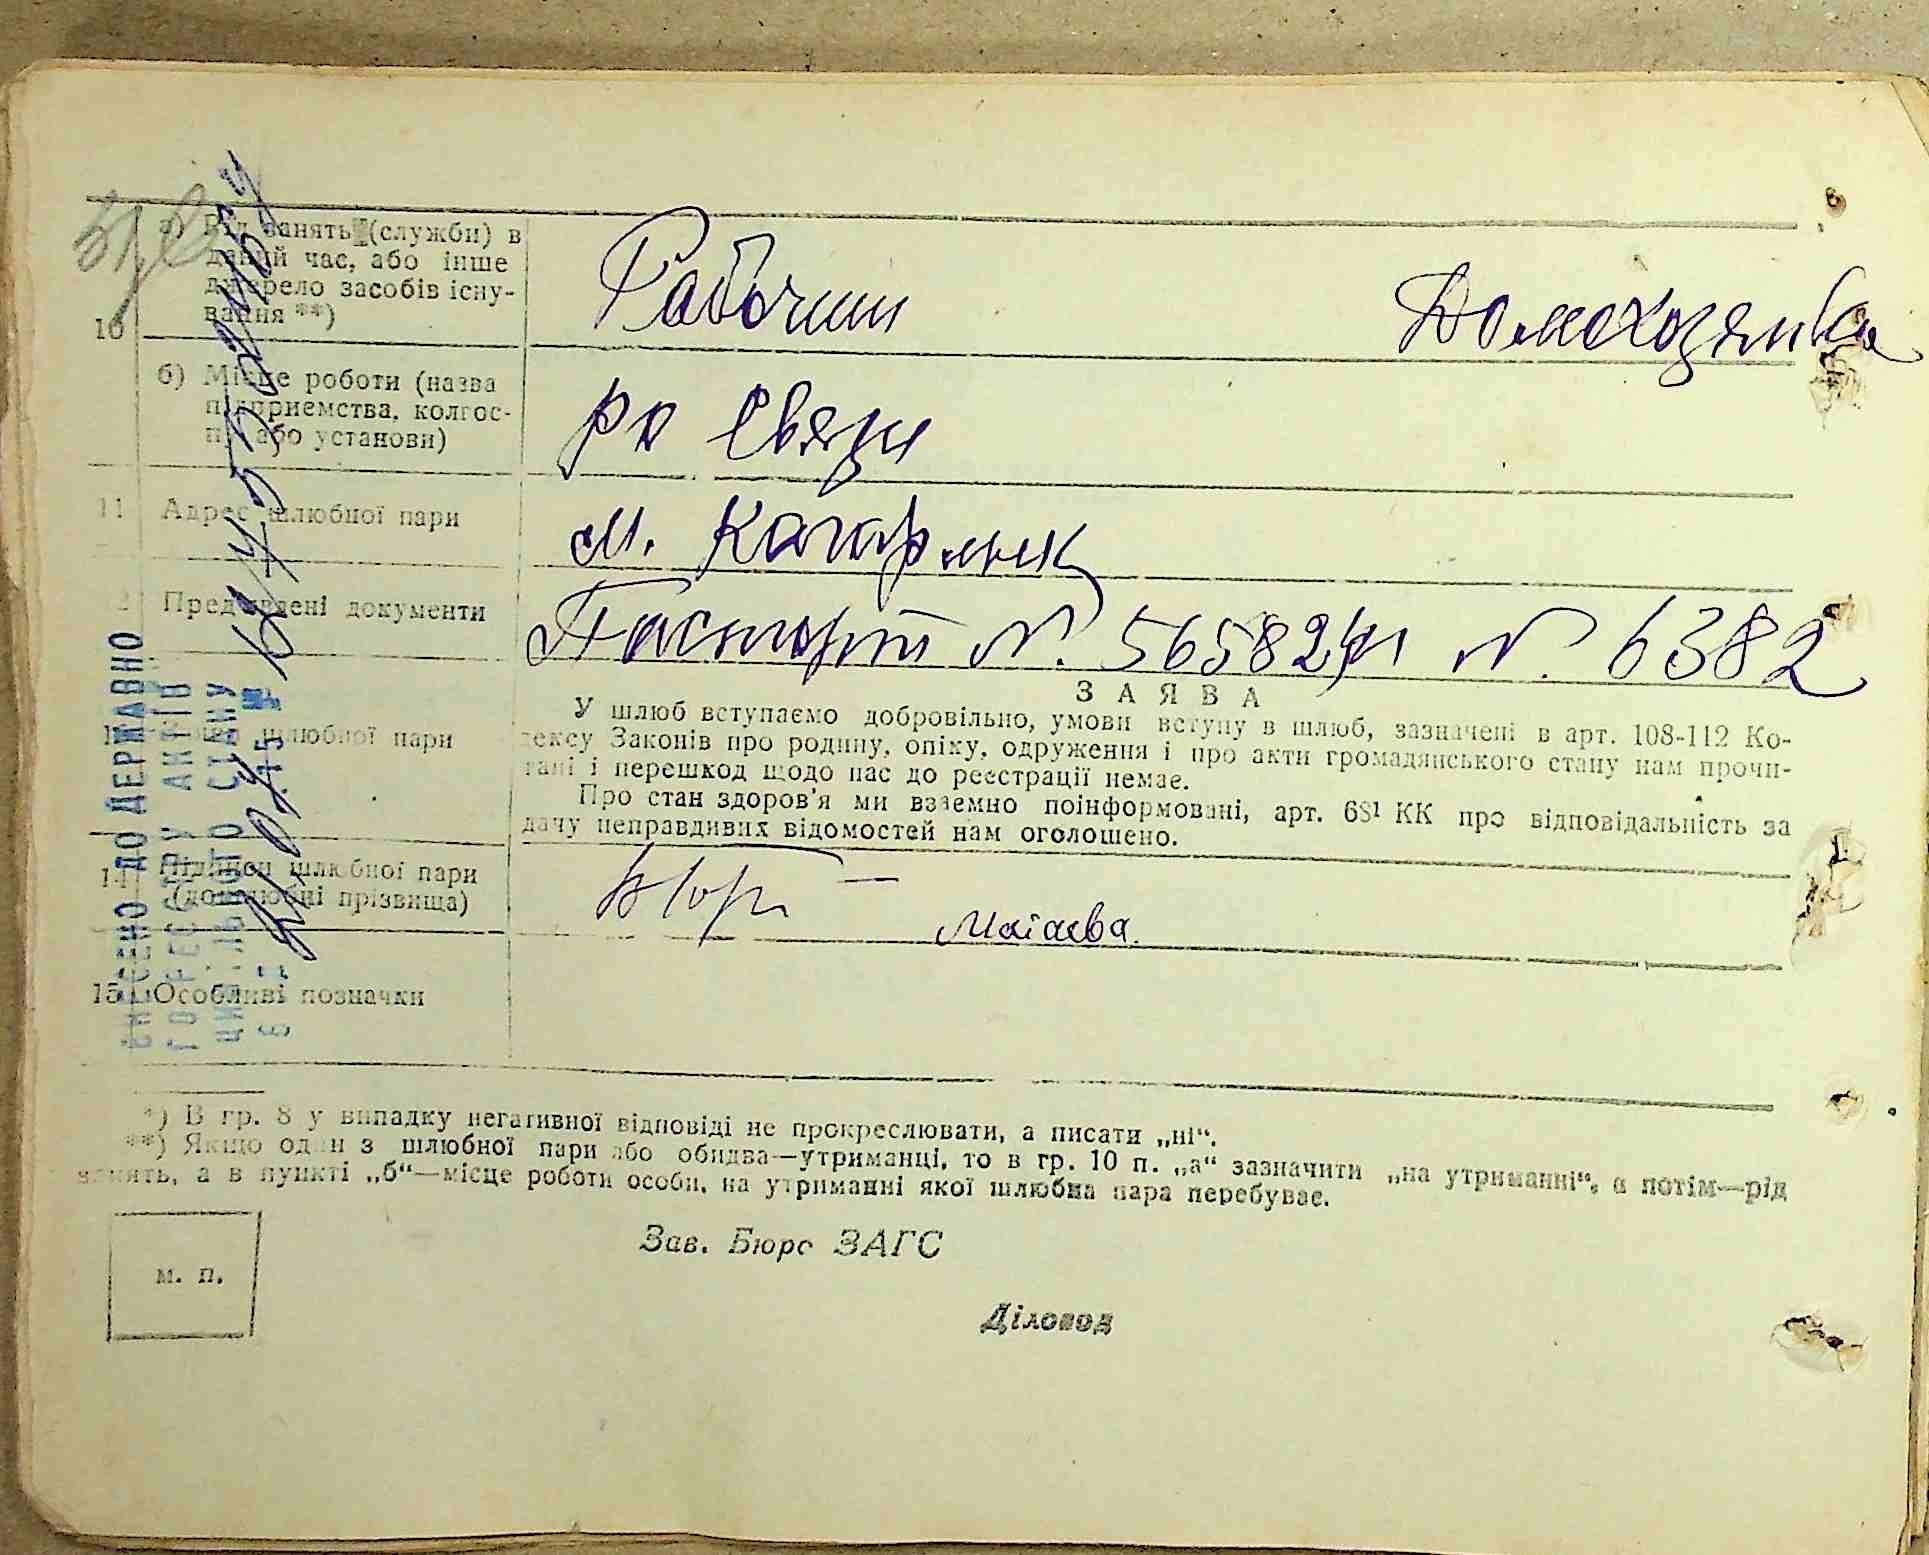 10
а) Вид занять (служби) в
даний час, або інше
джерело засобів існу-
вання **)
Рабочий
Домохозяйка
б) Місце роботи (назва
підприємства, колгос-
пу або установи)
РО Связи
11 Адрес шлюбної пари
м. Кагарлик
Пред'явлені документи
Паспорт №. 565824 № 6382
ЗАЯВА
шлюбної пари
У шлюб вступаємо добровільно, умови вступу в шлюб, зазначені в арт. 108-112 Ко-
дексу Законів про родину, опіку, одруження і про акти громадянського стану нам прочи-
тані і перешкод щодо нас до реєстрації немає.
Про стан здоров'я ми взаємно поінформовані, арт. 68¹ КК про відповідальність за
дачу неправдивих відомостей нам оголошено.
14 Підписи шлюбної пари
(дошлюбні прізвища)
15 Особливі позначки
*) В гр. 8 у випадку негативної відповіді не прокреслювати, а писати „ні“.
**) Якщо один з шлюбної пари або обидва—утриманці, то в гр. 10 п. „а“ зазначити „на утриманні“, а потім—рід
занять, а в пункті „б“—місце роботи особи, на утриманні якої шлюбна пара перебуває.
м. п.
Зав. Бюро ЗАГС
Діловод
ВНЕСЕНО ДО ДЕРЖАВНО
ГО РЕЄСТРУ АКТІВ
ЦИВІЛЬНОГО СТАНУ